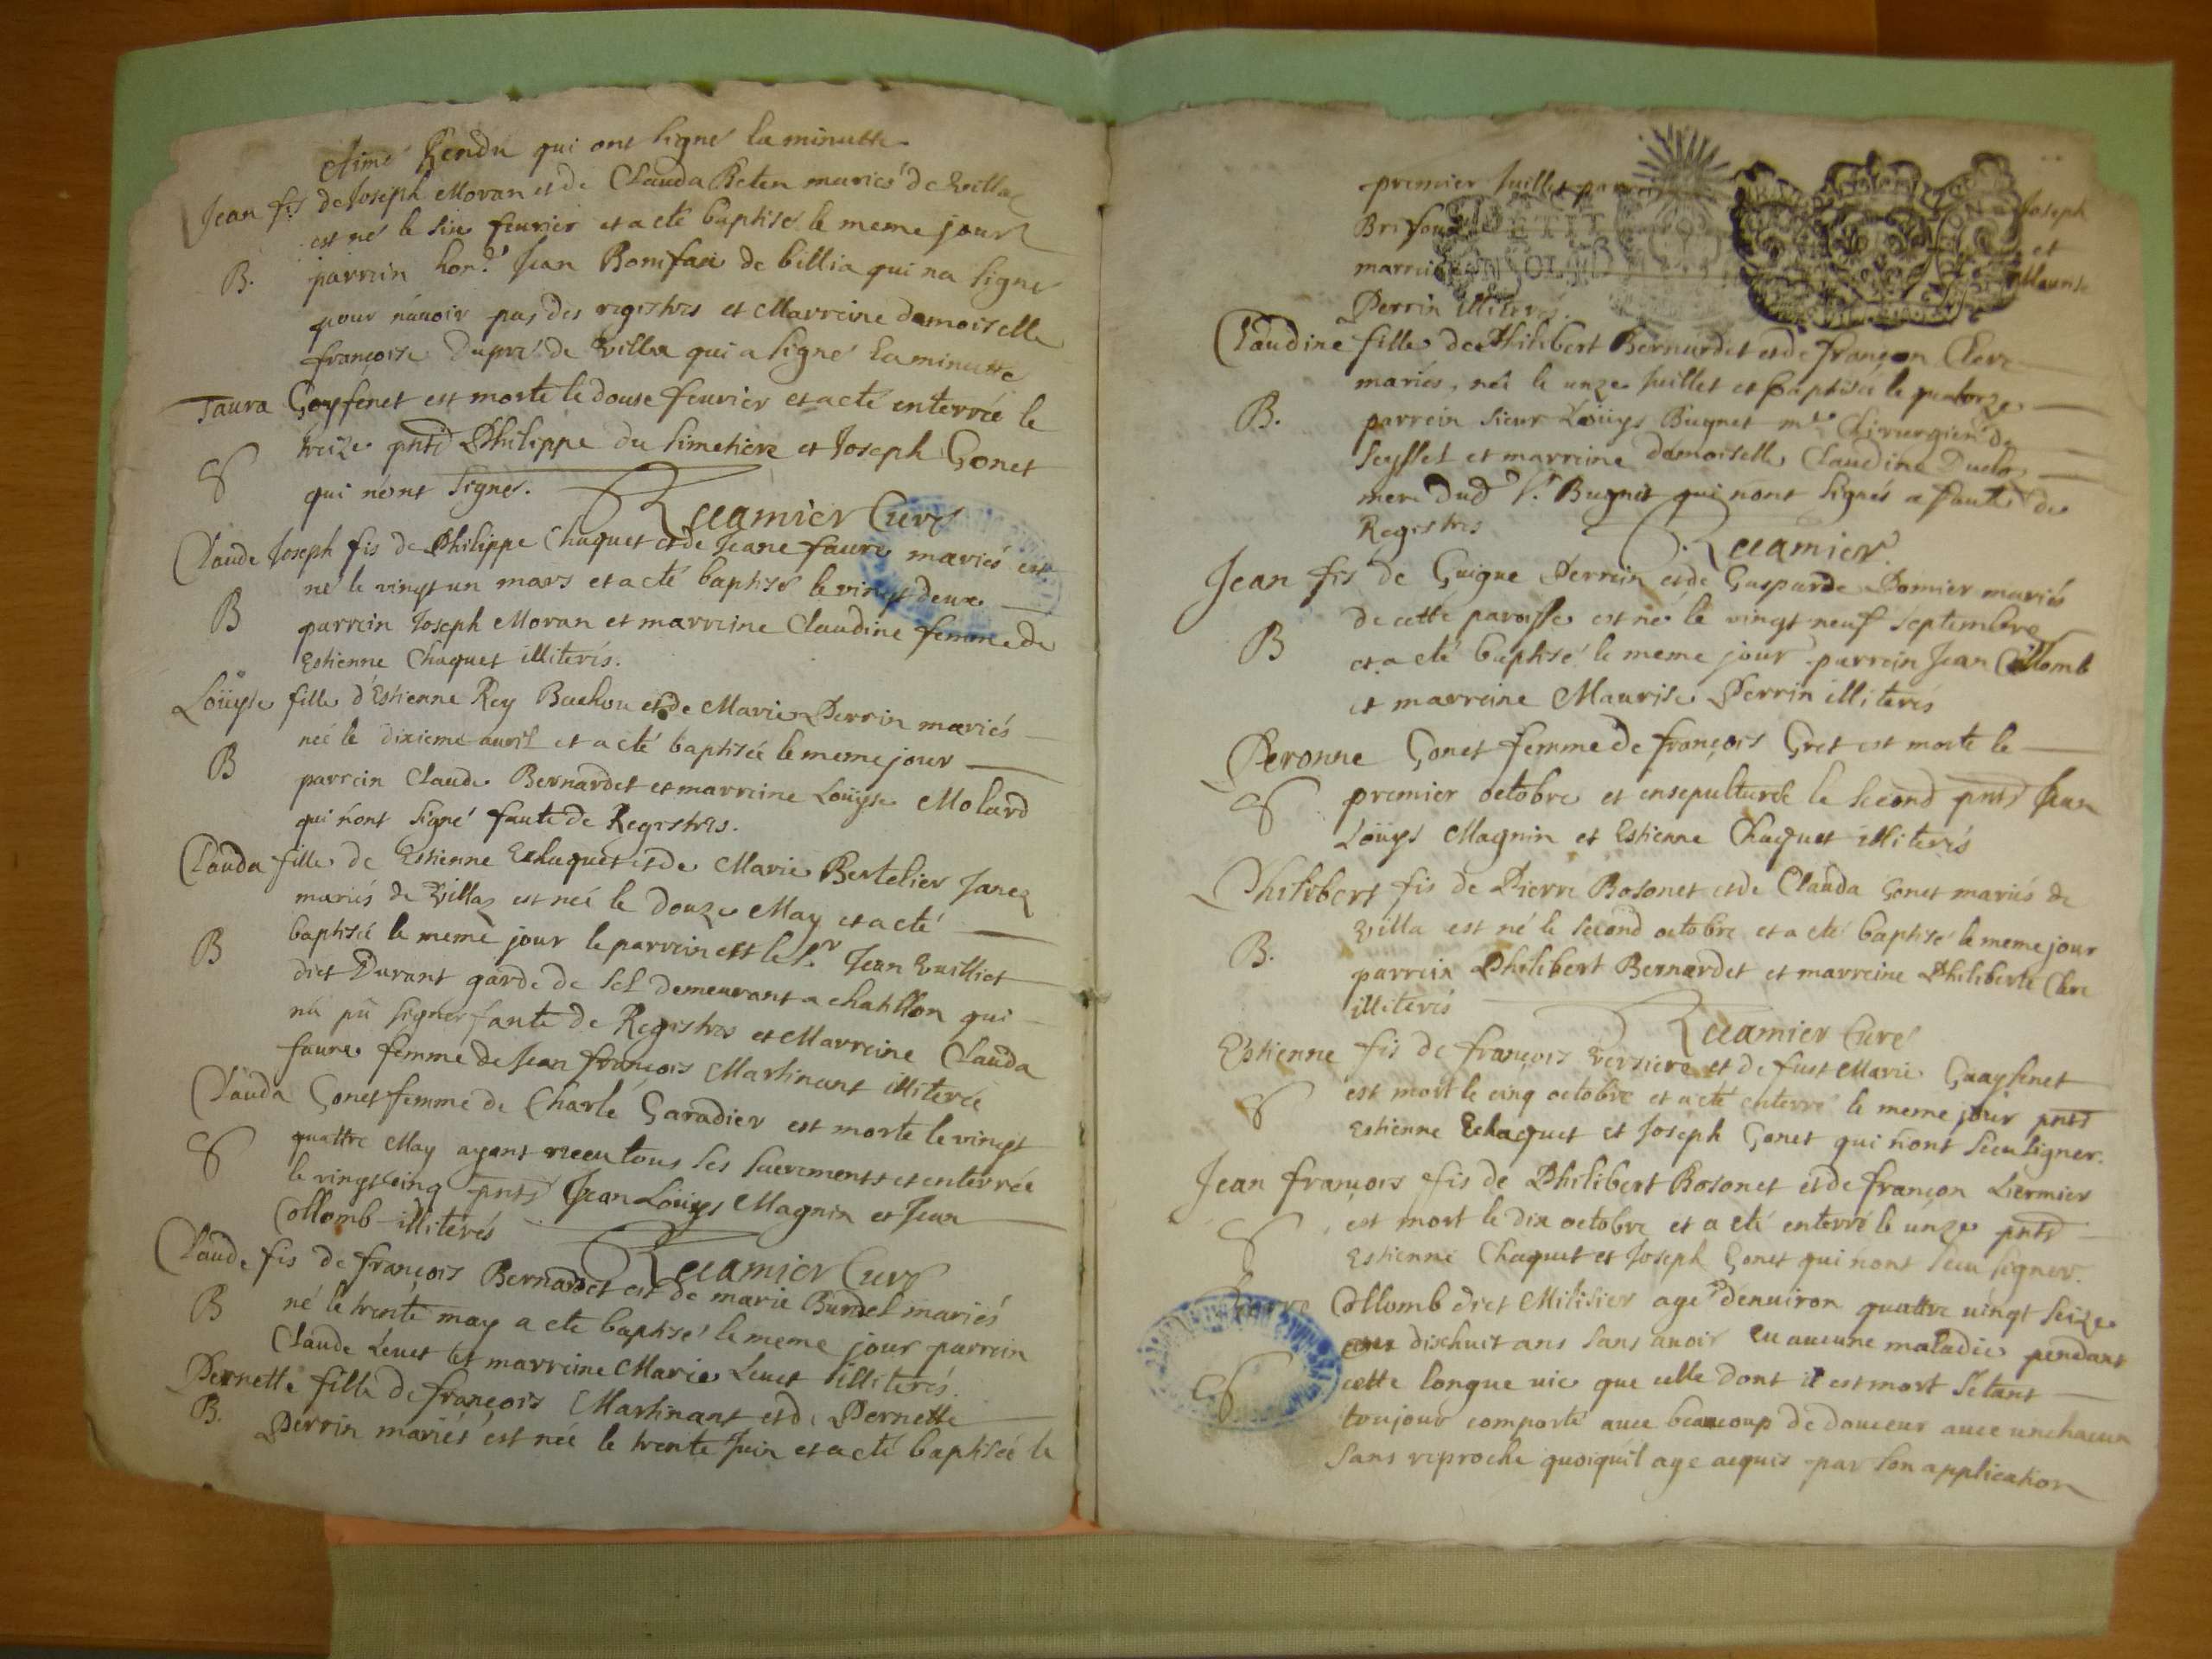 Aimé Rendu qui ont signé la minutte
Jean fis de Joseph Moran et de Clauda Reten mariés de Villaz
est né le six feurier et a eté baptisé le meme jour
B. parrein hon.e Jean Bonifaci de billia qui na signé
pour náuoir pas des registres et Marreine demoiselle
françoise Dupré de Villaz qui a signé la minutte
Taura Goyfenet est morte le douse feurier et a eté enterrée le
S treize pntd Philippe du simetiere et Joseph Gonet
qui nónt signé.
Recamier Curé
Claude Joseph fis de Philippe Chaquet et de Jeane faure mariés est
né le vingt un mars et a eté baptisé le vingt deux
B parrein Joseph Moran et marreine Claudine femme de
Estienne Chaquet illiterés.
Loüyse fille d'Estienne Rey Buchou et de Marie Perrin mariés
neé le dixieme auril et a eté baptisée le meme jour
B parrein Claude Bernardet et marreine Loüyse Molard
qui nónt signé faute de Registres.
Clauda fille de Estienne Echaquet et de Marie Bertelier Janez
mariés de Villaz est neé le douze May et a eté
B baptisé le meme jour le parrein est le Sr. Jean Vuilliet
dict Durant garde de sel demeurant a chatillon qui
ná pû signer faute de Registres et Marreine Clauda
faure femme de Jean françois Martinant illiterée
Clauda Gonet femme de Charle Garadier est morte le vingt
S quattre May ayant receu tous ses sacrements et enterrée
le vingt cinq pntd Jean Loüys Magnin et Jean
Collomb illiterés
Recamier Curé
Claude fis de françois Bernardet est de marie Burdel mariés
B né le trente may a eté baptisé le meme jour parrein
Claude Leuet et marreine Marie Leuet illiterés.
Pernette fille de françois Martinant et de Pernette
B. Perrin mariés est neé le trente Juin et a eté baptisée le
premier Juillet
Joseph
Brifou
et
Maurise
Perrin illiterés.
Claudine fille de Philibert Bernardet et de françon Clerc
mariés, neé le unze Juillet et baptisée le quatorze
B. parrein sieur Loüys Bugnet me Chirurgien de
seyssel et marreine demoiselle Claudine Duclo
mere dud Sr Bugnet qui nónt signés a faute de
Registres
Recamier
Jean fis de Guigue Perrein et de Gasparde Pomier mariés
de cette paroisse est né le vingt neuf septembre
B et a eté baptisé le meme jour parrein Jean Collomb
et marreine Maurise Perrin illiterés
Peronne Gonet femme de françois Gret est morte le
S premier octobre et ensepulturée le second pntd Jean
Loüys Magnin et Estienne Chaquet illiterés
Philibert fis de Pierre Bosonet et de Clauda Gonet mariés de
Villa est né le second octobre et a eté baptisé le meme jour
B. parrein Philibert Bernardet et marreine Philiberte Clere
illiterés
Recamier Curé
Estienne fis de françois Versiere et de fuet Marie Gaaysenet
est mort le cinq octobre et a eté enterré le meme jour pntd
S Estienne Echaquet et Joseph Gonet qui nónt sceu signer.
Jean françois fis de Philibert Bosonet et de françon Liermier
est mort le dix octobre et a eté enterré le unze pntd
S Estienne Chaquet et Joseph Gonet qui nónt sceu signer.
Collomb dict Milisier agé dénuiron quattre uingt seize
ou dixhuit ans sans auoir eu aucune maladie pendant
S cette longue uie que celle dont il est mort s'etant
toujour comporté auec beaucoup de douceur auec unchacun
sans reproche quoiquil aye acquis par son application